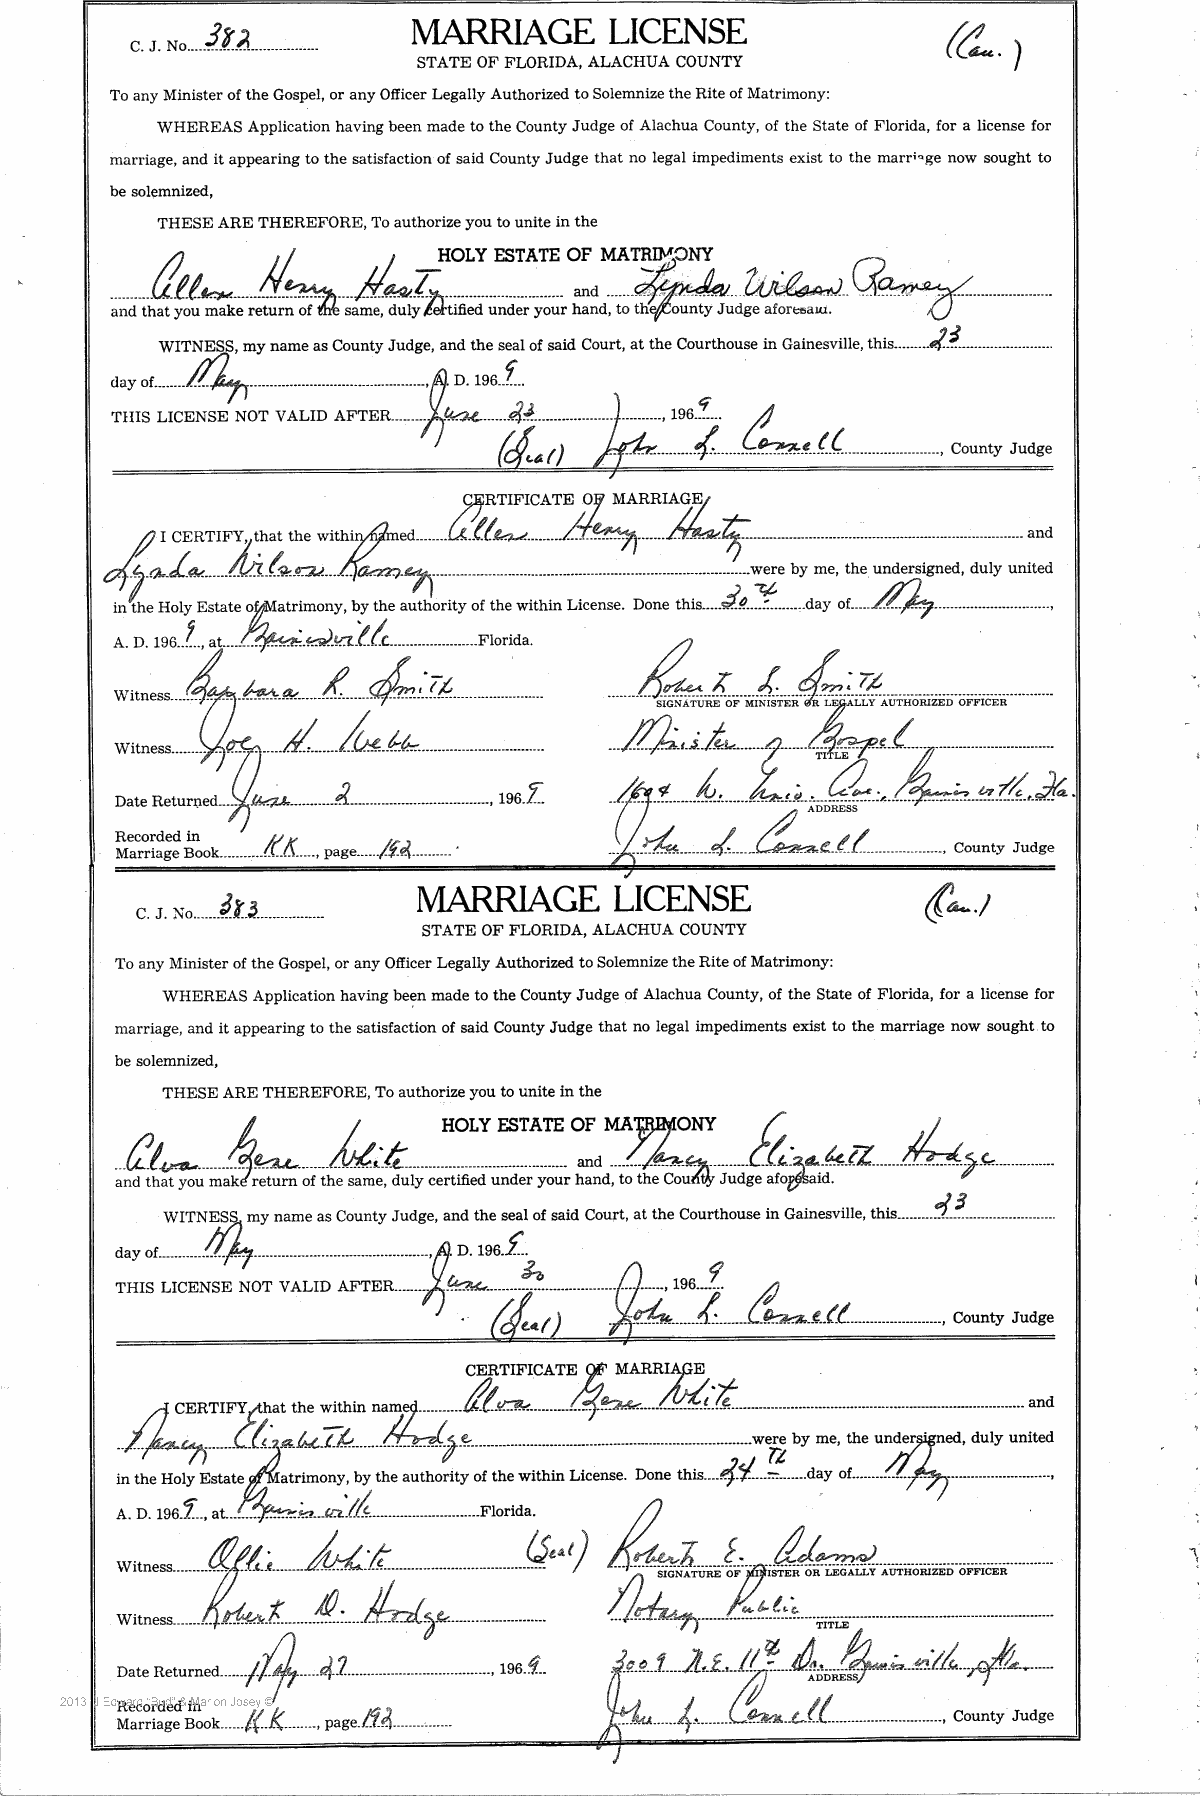 C. J. No. 382
MARRIAGE LICENSE
(Cau.)
STATE OF FLORIDA, ALACHUA COUNTY
To any Minister of the Gospel, or any Officer Legally Authorized to Solemnize the Rite of Matrimony:
WHEREAS Application having been made to the County Judge of Alachua County, of the State of Florida, for a license for
marriage, and it appearing to the satisfaction of said County Judge that no legal impediments exist to the marriage now sought to
be solemnized,
THESE ARE THEREFORE, To authorize you to unite in the
HOLY ESTATE OF MATRIMONY
Allen Henry Hasty and Lynda Wilson Ramey
and that you make return of the same, duly certified under your hand, to the County Judge aforesaid.
WITNESS, my name as County Judge, and the seal of said Court, at the Courthouse in Gainesville, this 23
day of May, A. D. 1969
THIS LICENSE NOT VALID AFTER June 23, 1969
(Seal) John L. Connell, County Judge
CERTIFICATE OF MARRIAGE
I CERTIFY, that the within named Allen Henry Hasty and
Lynda Wilson Ramey were by me, the undersigned, duly united
in the Holy Estate of Matrimony, by the authority of the within License. Done this 30th day of May,
A. D. 1969, at Gainesville Florida.
Witness Barbara R. Smith Robert L. Smith
SIGNATURE OF MINISTER OR LEGALLY AUTHORIZED OFFICER
Witness Joey H. Webb Minister of Gospel
TITLE
Date Returned June 2, 1969 W. Univ. Ave., Gainesville, Fla.
ADDRESS
Recorded in
Marriage Book KK, page 192 John L. Connell, County Judge
C. J. No. 383
MARRIAGE LICENSE
(Cau.)
STATE OF FLORIDA, ALACHUA COUNTY
To any Minister of the Gospel, or any Officer Legally Authorized to Solemnize the Rite of Matrimony:
WHEREAS Application having been made to the County Judge of Alachua County, of the State of Florida, for a license for
marriage, and it appearing to the satisfaction of said County Judge that no legal impediments exist to the marriage now sought to
be solemnized,
THESE ARE THEREFORE, To authorize you to unite in the
HOLY ESTATE OF MATRIMONY
Alva Gene White and Nancy Elizabeth Hodge
and that you make return of the same, duly certified under your hand, to the County Judge aforesaid.
WITNESS, my name as County Judge, and the seal of said Court, at the Courthouse in Gainesville, this 23
day of May, A. D. 1969
THIS LICENSE NOT VALID AFTER June 30, 1969
(Seal) John L. Connell, County Judge
CERTIFICATE OF MARRIAGE
I CERTIFY, that the within named Alva Gene White and
Nancy Elizabeth Hodge were by me, the undersigned, duly united
in the Holy Estate of Matrimony, by the authority of the within License. Done this 24th day of May,
A. D. 1969, at Gainesville Florida.
Witness Ollie White (Seal) Robert E. Adams
SIGNATURE OF MINISTER OR LEGALLY AUTHORIZED OFFICER
Witness Robert D. Hodge Notary Public
TITLE
Date Returned May 27, 1969 3009 N.E. 11th Dr. Gainesville, Fla.
ADDRESS
2013 J Edward "Bud" & Marion Josey ©
Recorded in
Marriage Book KK, page 192 John L. Connell, County Judge